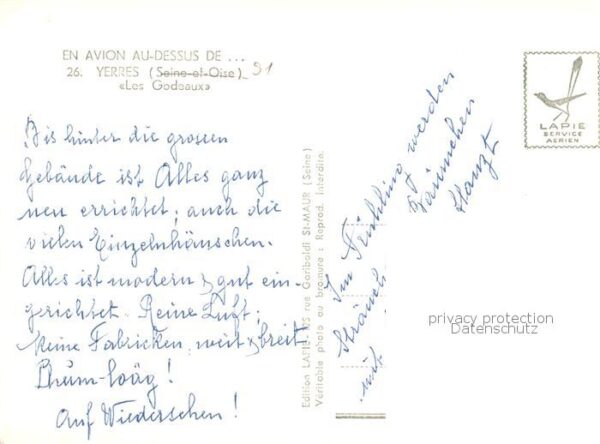 EN AVION AU-DESSUS DE ...
26. YERRES (Seine-et-Oise) 91
«Les Godeaux»
Bis hinter die grossen
Gebäude ist Alles ganz
neu errichtet; auch die
vielen Einzelnhäuschen.
Alles ist modern & gut ein-
gerichtet. Reine Luft.
Keine Fabricken, weit & breit!
Auf Wiedersehen!
Edition LAPIE, rue Garibaldi St-MAUR (Seine)
Véritable photo au bromure : Reprod. interdite.
Im Frühling werden
Sträuch
Bäumchen
mit
LAPIE
SERVICE
AERIEN
privacy protection
Datenschutz